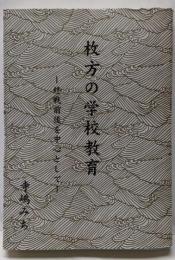 枚方の学校教育
―終戦前後を中心として―
寺嶋みち